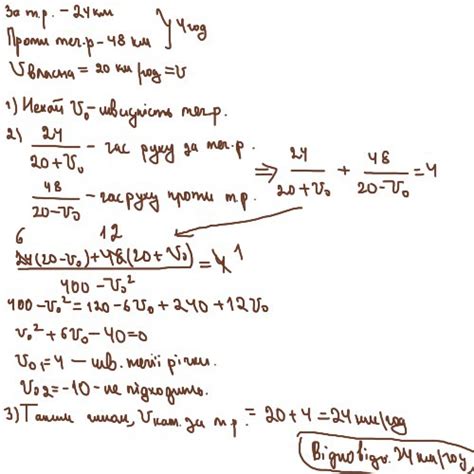 За т.р. – 24 км
Проти теч.р – 48 км } 4 год
V власна = 20 км/год = V
1) Нехай V₀ – швидкість теч.р.
2) 24/(20+V₀) – час руху за теч.р.
48/(20-V₀) – час руху проти т.р.
⇒ 24/(20+V₀) + 48/(20-V₀) = 4
6 12
(24(20-V₀)+48(20+V₀))/(400-V₀²) = 4 1
400-V₀² = 120-6V₀+240+12V₀
V₀²+6V₀-40=0
V₀₁=4 – шв. течії річки.
V₀₂=-10 – не підходить.
3) Таким чином, V кат. за т.р. = 20+4 = 24 км/год
Відповідь. 24 км/год